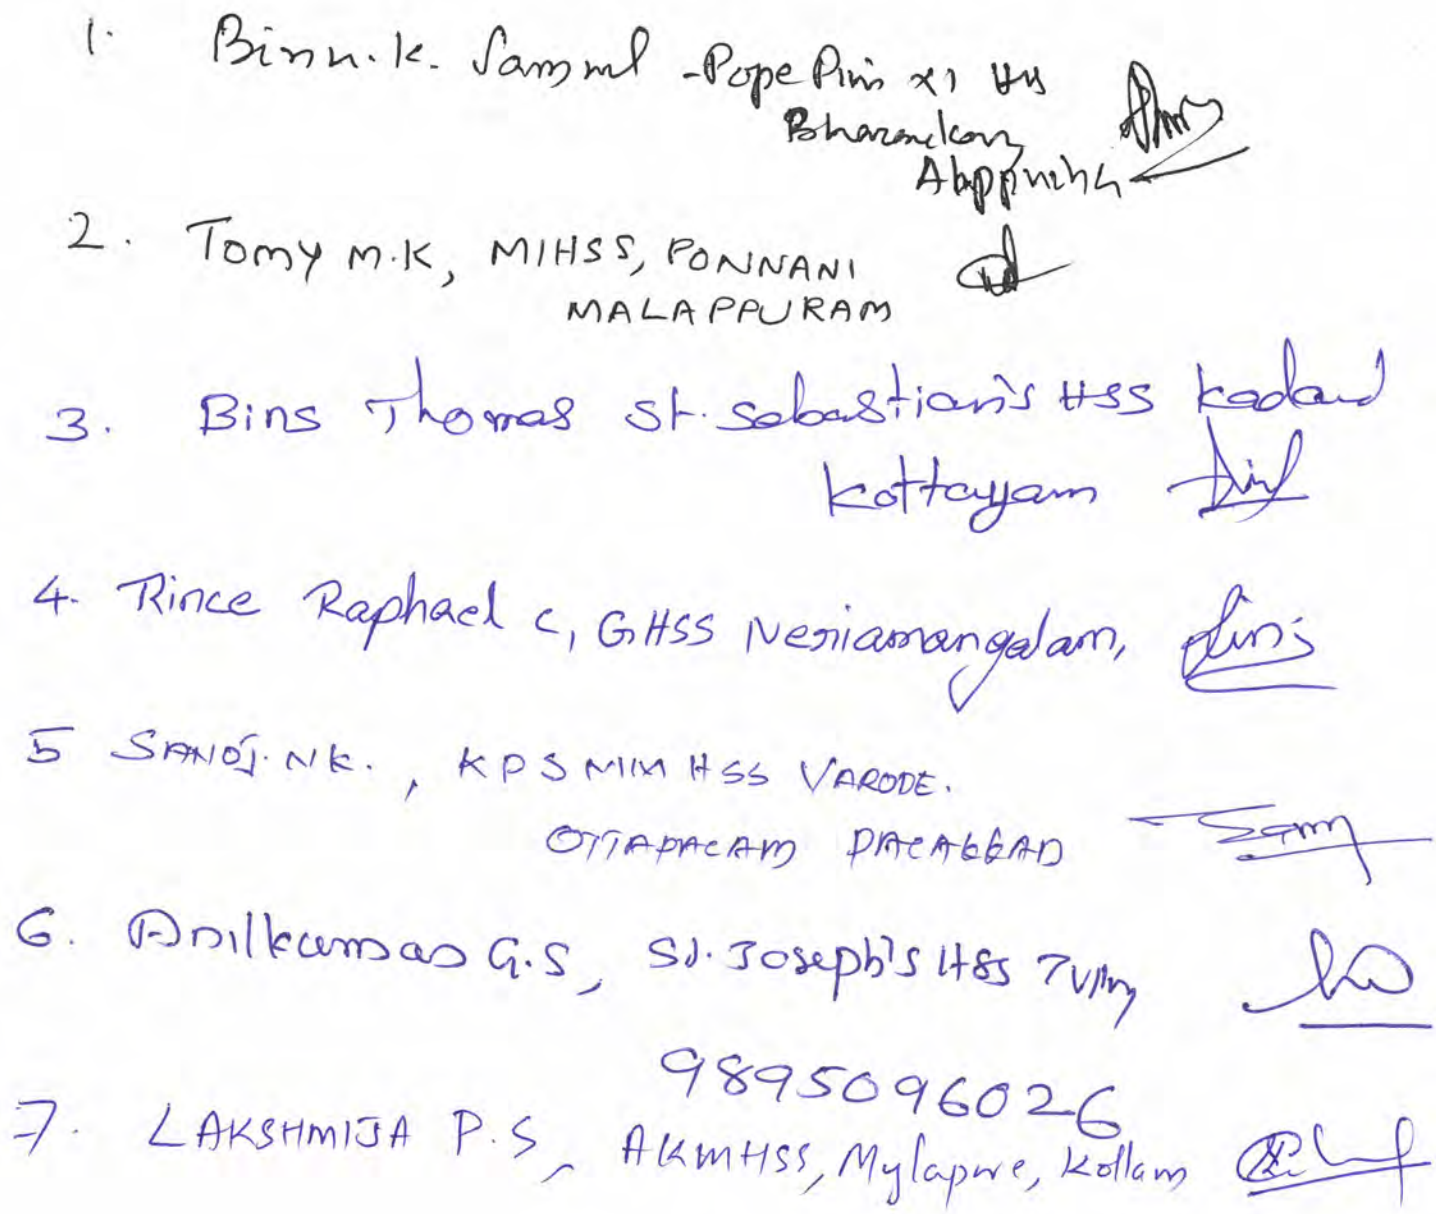 1. Binu. K. Samuel - Pope Pius XI HSS
Bharanikavu
Alappuzha
2. Tomy M.K, MIHSS, PONNANI
MALAPPURAM
3. Bins Thomas St. Sebastian's HSS Kadanad
Kottayam
4. Rince Raphael C, GHSS Neriamangalam,
5 SANOJ. N K. , KPSMM HSS VARODE.
OTTAPALAM PALAKKAD
6. Anilkumar G.S, St. Joseph's HSS TVPM
9895096026
7. LAKSHMIJA P.S, AKMHSS, Mylapure, Kollam